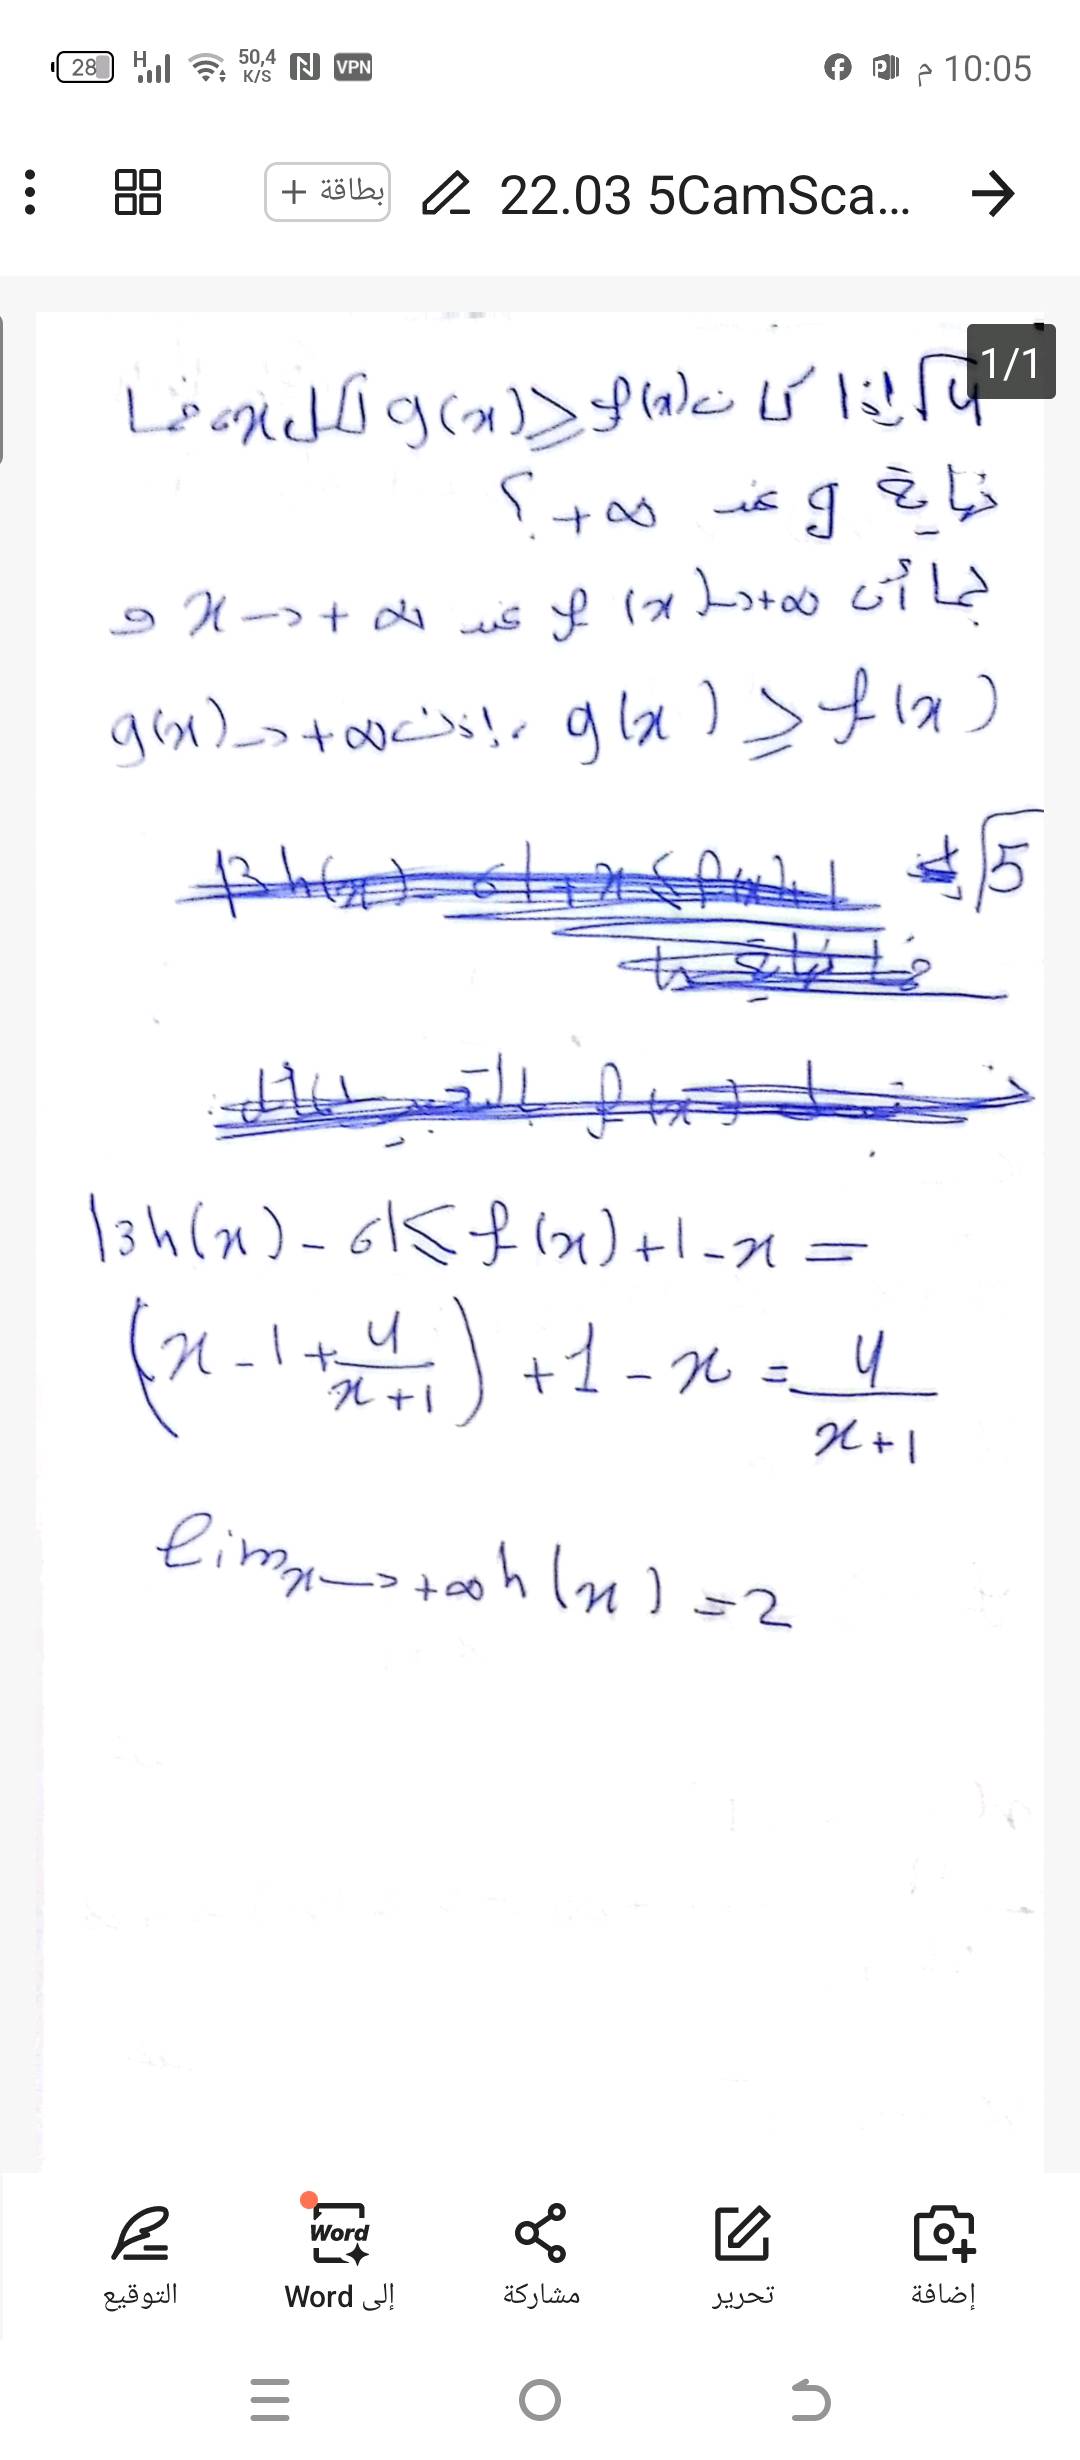 28 H 50,4 K/S N VPN 10:05 م
بطاقة + 22.03 5CamSca...
1/1
4 إذا كانت g(x)≥f(x) لكل x، فما
نهاية g عند +∞؟
بما أن f(x)→+∞ عند x→+∞ و
g(x)≥f(x)، إذن g(x)→+∞
5
|3h(x)-6|≤f(x)+1-x=
(x-1+4/(x+1))+1-x=4/(x+1)
lim x→+∞ h(x)=2
التوقيع
إلى Word
مشاركة
تحرير
إضافة